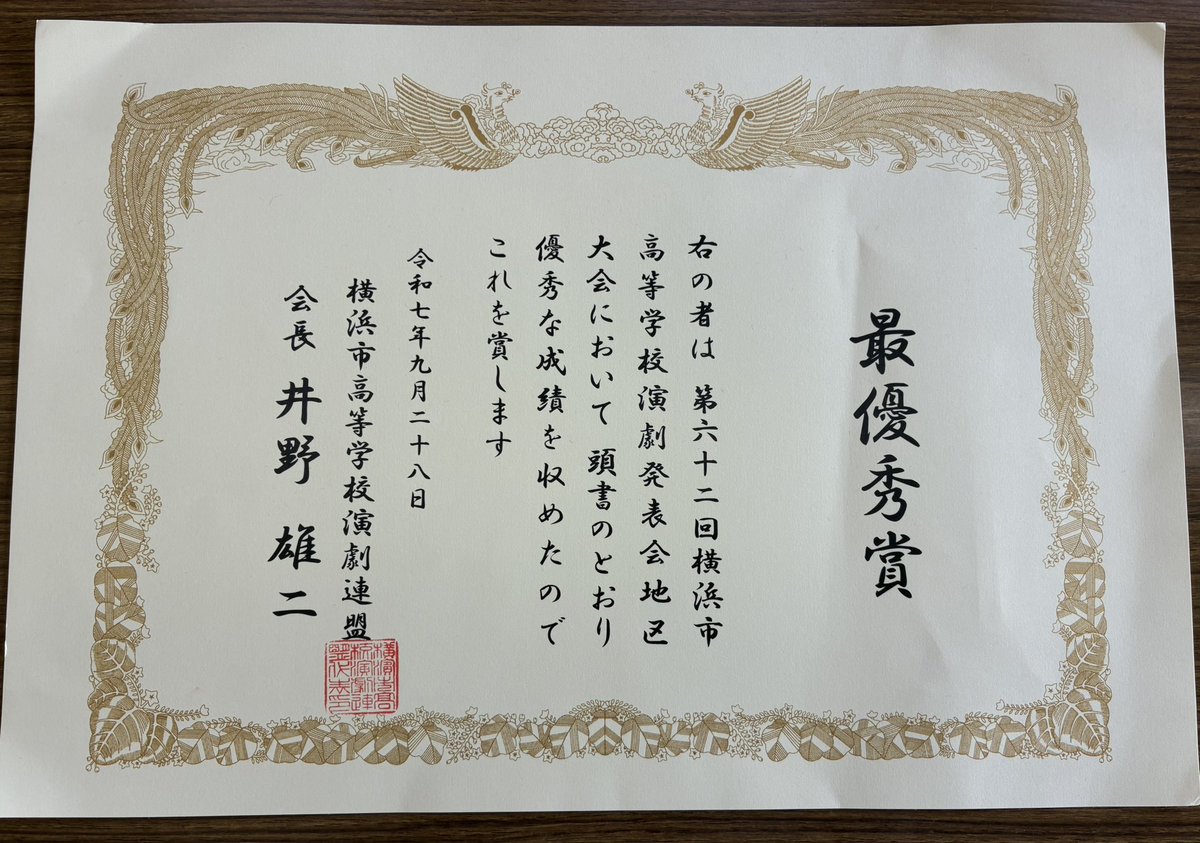 最優秀賞
右の者は 第六十二回横浜市
高等学校演劇発表会地区
大会において 頭書のとおり
優秀な成績を収めたので
これを賞します
令和七年九月二十八日
横浜市高等学校演劇連盟
会長 井野 雄二